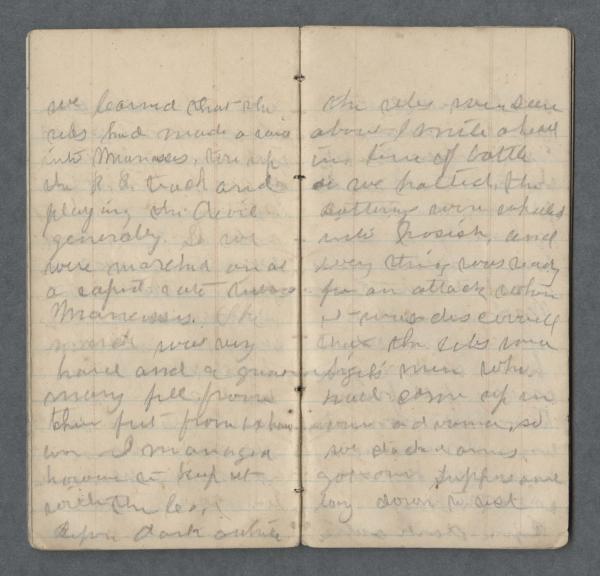 we learned that the
rebs had made a raid
into Manasses, tore up
the R. R. track and
playing the Devil
generally. So we
were marched on at
a rapid rate
Manassis. The
march was very
hard and a
many fell from
their feet from
I managed
however to keep up
with the
before dark
the rebs were seen
about 1 mile ahead
in line of battle
so we halted, the
battery were wheeled
into Posish, and
every thing was ready
for an attack when
it was discovered
that the rebs were
men who
had come up in
our advance, so
we stack arms
got our supper and
lay down to rest